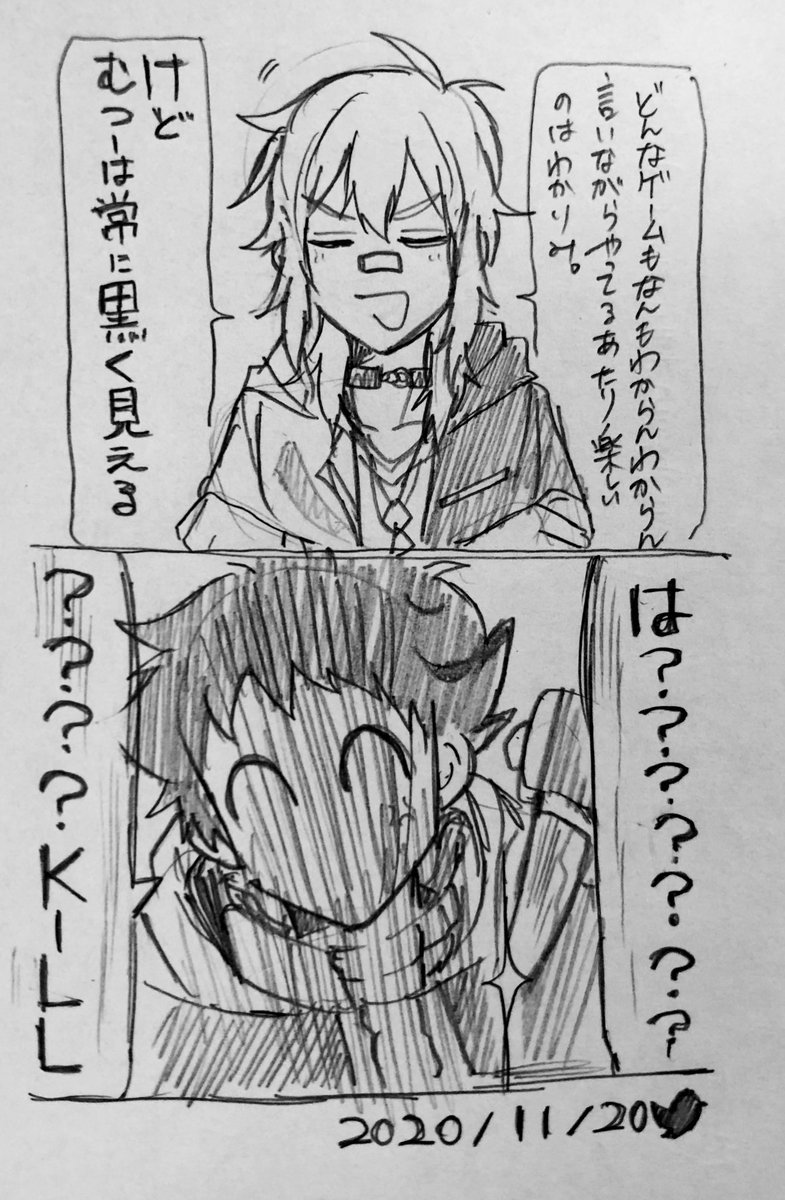 どんなゲームもなんもわからんわからん
言いながらやってるあたり楽しい
のはわかりみ。
けど
むつーは常に黒く見える
は？？？？？？？
？？？？KILL
2020/11/20